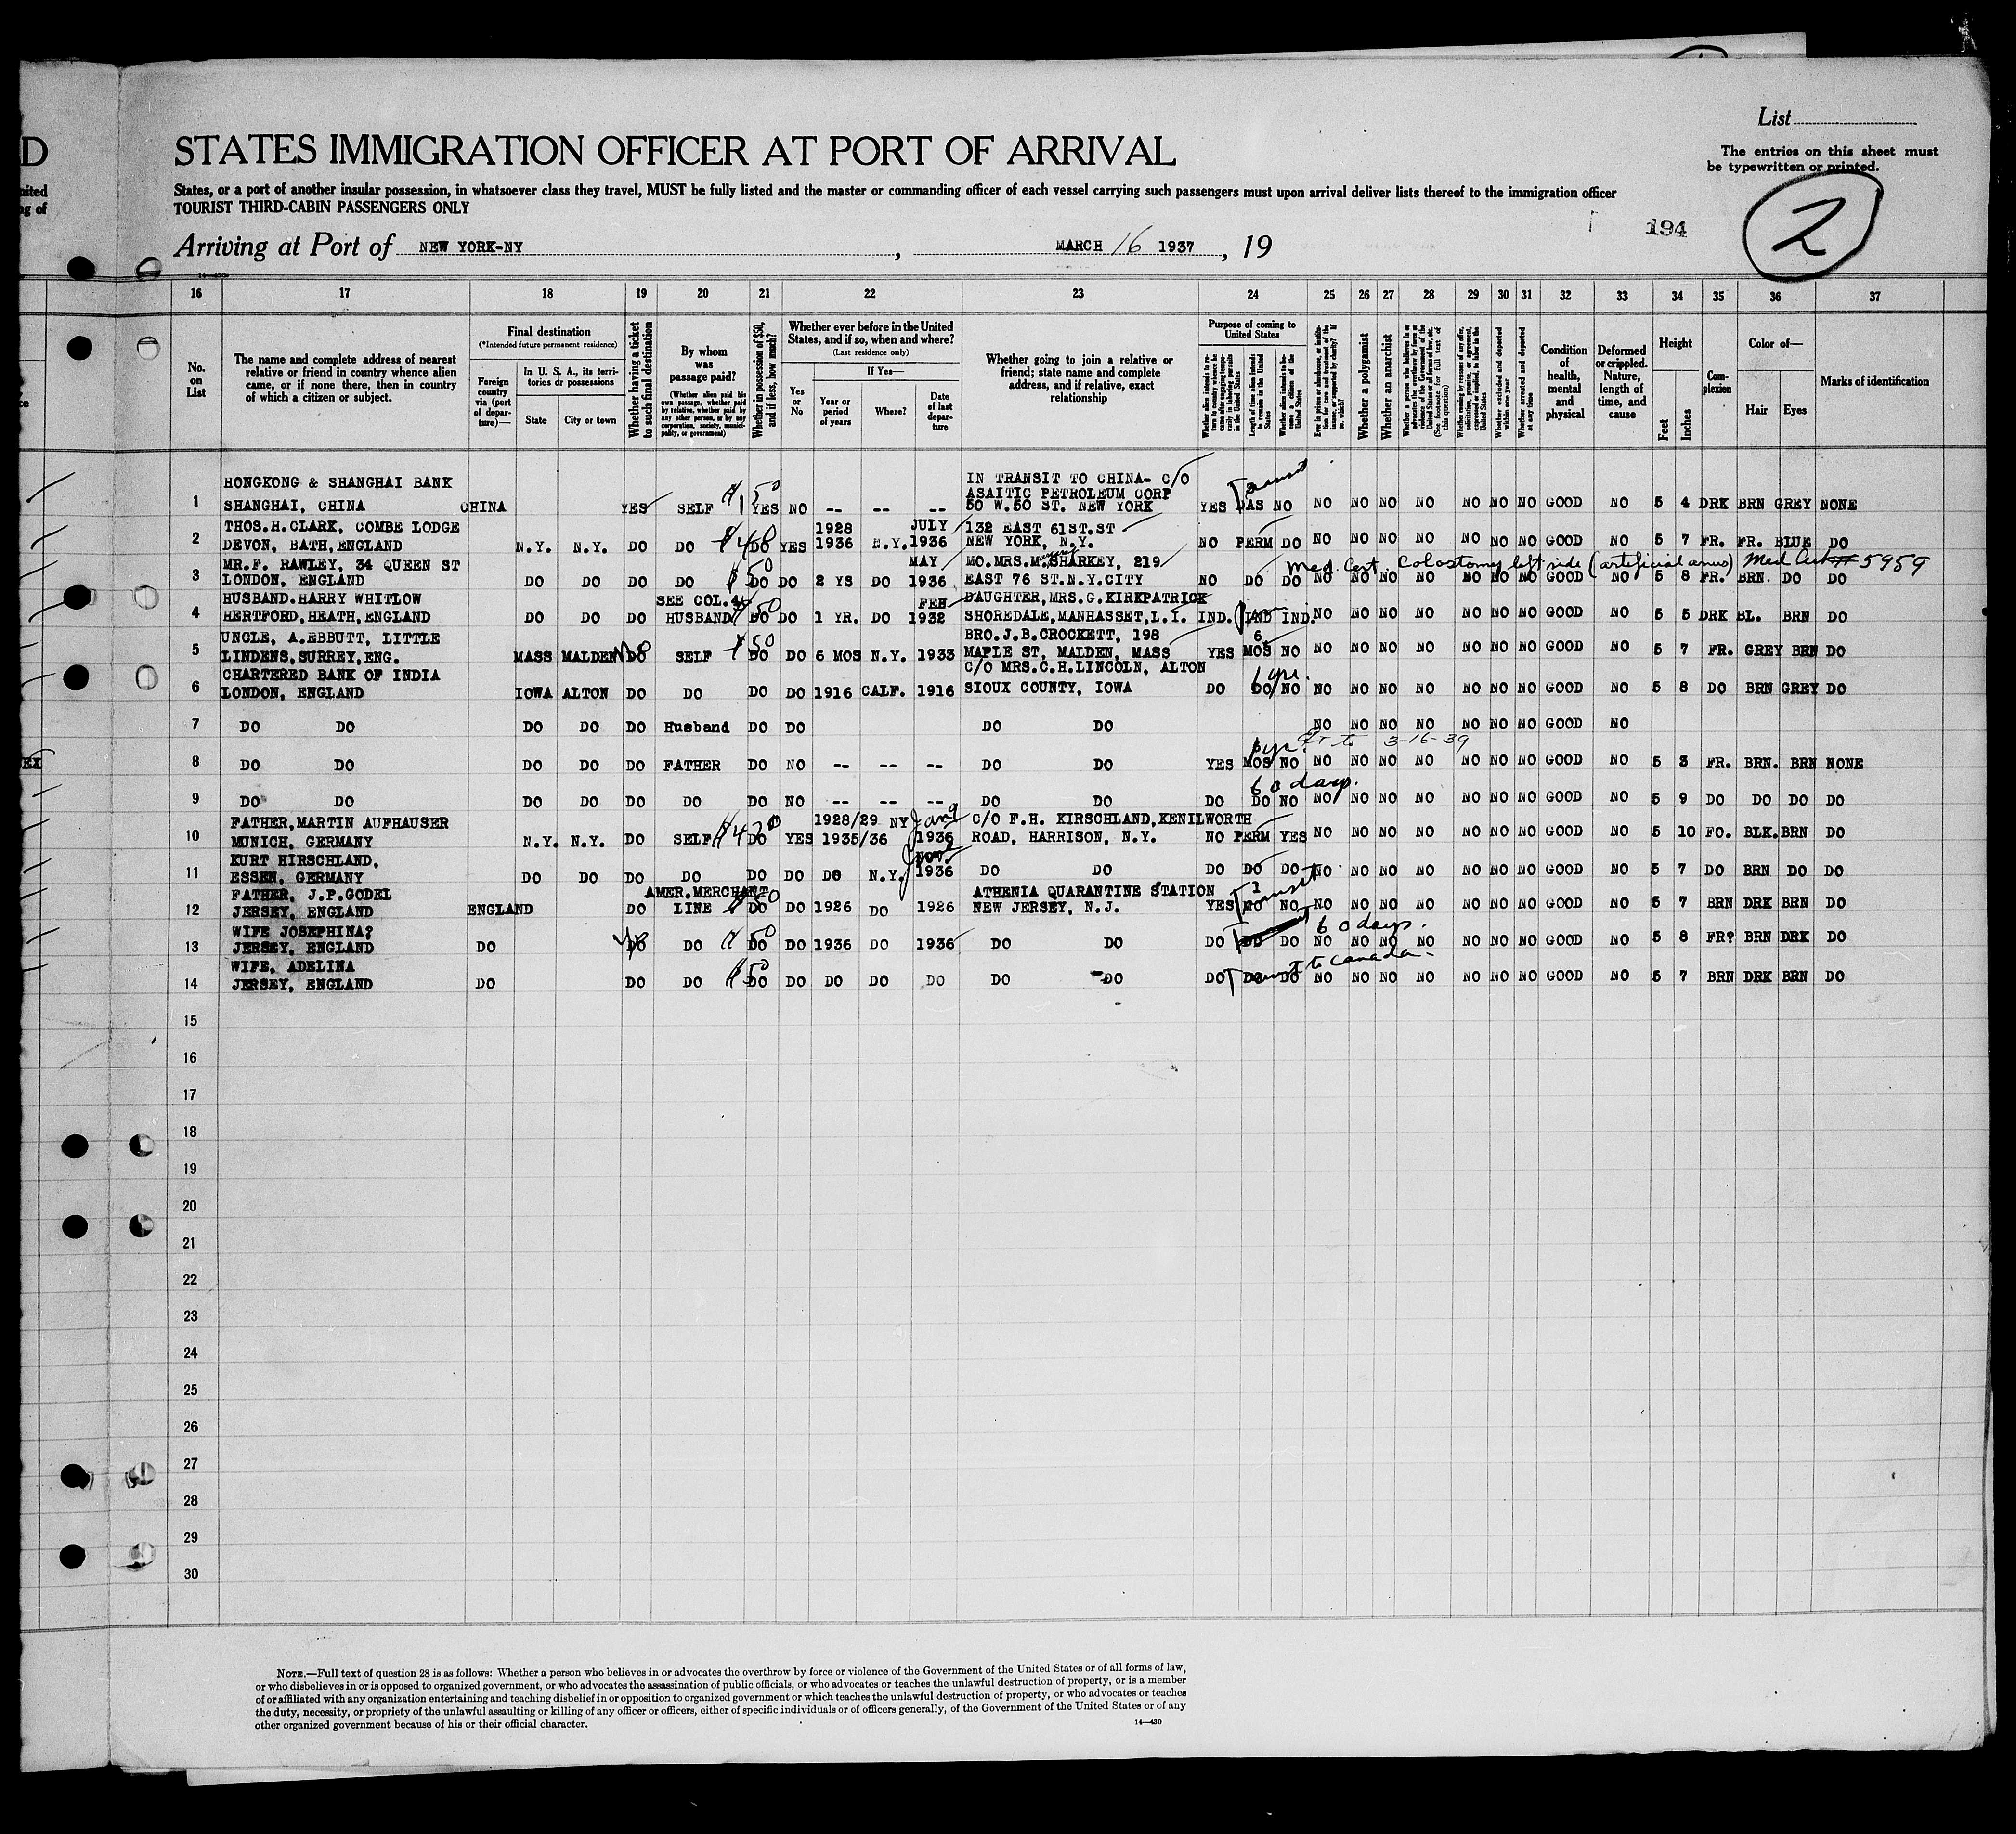 List
STATES IMMIGRATION OFFICER AT PORT OF ARRIVAL
The entries on this sheet must
be typewritten or printed.
D
nited
ng of
States, or a port of another insular possession, in whatsoever class they travel, MUST be fully listed and the master or commanding officer of each vessel carrying such passengers must upon arrival deliver lists thereof to the immigration officer
TOURIST THIRD-CABIN PASSENGERS ONLY
194
2
Arriving at Port of NEW YORK-NY, MARCH 16 1937, 19
16 17 18 19 20 21 22 23 24 25 26 27 28 29 30 31 32 33 34 35 36 37
No. on List
The name and complete address of nearest relative or friend in country whence alien came, or if none there, then in country of which a citizen or subject.
Final destination
(*Intended future permanent residence)
Foreign country via (port of departure)—
In U. S. A., its territories or possessions
State City or town
Whether having a ticket to such final destination
By whom was passage paid?
(Whether alien paid his own passage, whether paid by relative, whether paid by any other person, or by any corporation, society, municipality, or government)
Whether in possession of $50, and if less, how much?
Whether ever before in the United States, and if so, when and where?
(Last residence only)
Yes or No
If Yes—
Year or period of years Where? Date of last departure
Whether going to join a relative or friend; state name and complete address, and if relative, exact relationship
Purpose of coming to United States
Length of time alien intends to remain in the United States
Whether alien intends to become a citizen of the United States
Whether a polygamist
Whether an anarchist
(See footnote for full text of this question)
Whether excluded and deported within one year
Whether arrested and deported at any time
Condition of health, mental and physical
Deformed or crippled. Nature, length of time, and cause
Height
Feet Inches
Complexion
Color of—
Hair Eyes
Marks of identification
HONGKONG & SHANGHAI BANK IN TRANSIT TO CHINA- C/O
ASAITIC PETROLEUM CORP Transit
1 SHANGHAI, CHINA CHINA YES SELF $150 YES NO -- -- -- 50 W.50 ST. NEW YORK YES DAS NO NO NO NO NO NO NO NO GOOD NO 5 4 DRK BRN GREY NONE
THOS.H.CLARK, COMBE LODGE 1928 JULY 132 EAST 61ST.ST
2 DEVON, BATH, ENGLAND N.Y. N.Y. DO DO DO YES 1936 N.Y. 1936 NEW YORK, N.Y. NO PERM DO NO NO NO NO NO NO NO GOOD NO 5 7 FR. FR. BLUE DO
MR.F. RAWLEY, 34 QUEEN ST MAY MO.MRS.M. SHARKEY, 219 Med. Cert. Colostomy left side (artificial anus) Med Cert # 5959
3 LONDON, ENGLAND DO DO DO DO $50 DO DO 2 YS DO 1936 EAST 76 ST.N.Y.CITY NO DO DO NO NO NO NO NO NO NO GOOD NO 5 8 FR. BRN. DO DO
HUSBAND.HARRY WHITLOW SEE COL.4 FEB DAUGHTER, MRS.G.KIRKPATRICK
4 HERTFORD,HEATH, ENGLAND DO DO DO HUSBAND $50 DO DO 1 YR. DO 1932 SHOREDALE, MANHASSET,L.I. IND. IND IND. NO NO NO NO NO NO NO GOOD NO 5 5 DRK BL. BRN DO
UNCLE, A.EBBUTT, LITTLE BRO.J.B.CROCKETT, 198 6
5 LINDENS, SURREY, ENG. MASS MALDEN No DO SELF $50 DO DO 6 MOS N.Y. 1933 MAPLE ST, MALDEN, MASS YES MOS NO NO NO NO NO NO NO NO GOOD NO 5 7 FR. GREY BRN DO
CHARTERED BANK OF INDIA C/O MRS.C.H.LINCOLN, ALTON 1 yr.
6 LONDON, ENGLAND IOWA ALTON DO DO DO DO 1916 CALF. 1916 SIOUX COUNTY, IOWA DO DO NO NO NO NO NO NO NO NO GOOD NO 5 8 DO BRN GREY DO
7 DO DO DO DO DO Husband DO DO DO DO NO NO NO NO NO NO NO GOOD NO
3-16-39
8 DO DO DO DO DO FATHER DO NO -- -- -- DO DO YES MOS NO NO NO NO NO NO NO NO GOOD NO 5 3 FR. BRN. BRN NONE
60 days.
9 DO DO DO DO DO DO DO NO -- -- -- DO DO DO DO NO NO NO NO NO NO NO NO GOOD NO 5 9 DO DO DO DO
FATHER, MARTIN AUFHAUSER 1928/29 NY C/O F.H. KIRSCHLAND, KENILWORTH
10 MUNICH, GERMANY N.Y. N.Y. DO SELF DO YES 1935/36 1936 ROAD, HARRISON, N.Y. NO PERM YES NO NO NO NO NO NO NO GOOD NO 5 10 FO. BLK. BRN DO
KURT HIRSCHLAND, NOV.
11 ESSEN, GERMANY DO DO DO DO DO DO DO N.Y. 1936 DO DO DO DO DO NO NO NO NO NO NO NO GOOD NO 5 7 DO BRN DO DO
FATHER, J.P.GODEL AMER.MERCHANT ATHENIA QUARANTINE STATION 1 Transit
12 JERSEY, ENGLAND ENGLAND DO LINE $50 DO DO 1926 DO 1926 NEW JERSEY, N.J. YES MO NO NO NO NO NO NO NO NO GOOD NO 5 7 BRN DRK BRN DO
WIFE JOSEPHINA? 60 days.
13 JERSEY, ENGLAND DO DO DO $50 DO DO 1936 DO 1936 DO DO DO DO DO NO NO NO NO NO NO NO GOOD NO 5 8 FR? BRN DRK DO
WIFE, ADELINA Transit to Canada.
14 JERSEY, ENGLAND DO DO DO $50 DO DO DO DO DO DO DO DO DO DO NO NO NO NO NO NO NO GOOD NO 5 7 BRN DRK BRN DO
15
16
17
18
19
20
21
22
23
24
25
26
27
28
29
30
NOTE.—Full text of question 28 is as follows: Whether a person who believes in or advocates the overthrow by force or violence of the Government of the United States or of all forms of law,
or who disbelieves in or is opposed to organized government, or who advocates the assassination of public officials, or who advocates or teaches the unlawful destruction of property, or is a member
of or affiliated with any organization entertaining and teaching disbelief in or opposition to organized government or which teaches the unlawful destruction of property, or who advocates or teaches
the duty, necessity, or propriety of the unlawful assaulting or killing of any officer or officers, either of specific individuals or of officers generally, of the Government of the United States or of any
other organized government because of his or their official character.
14—430